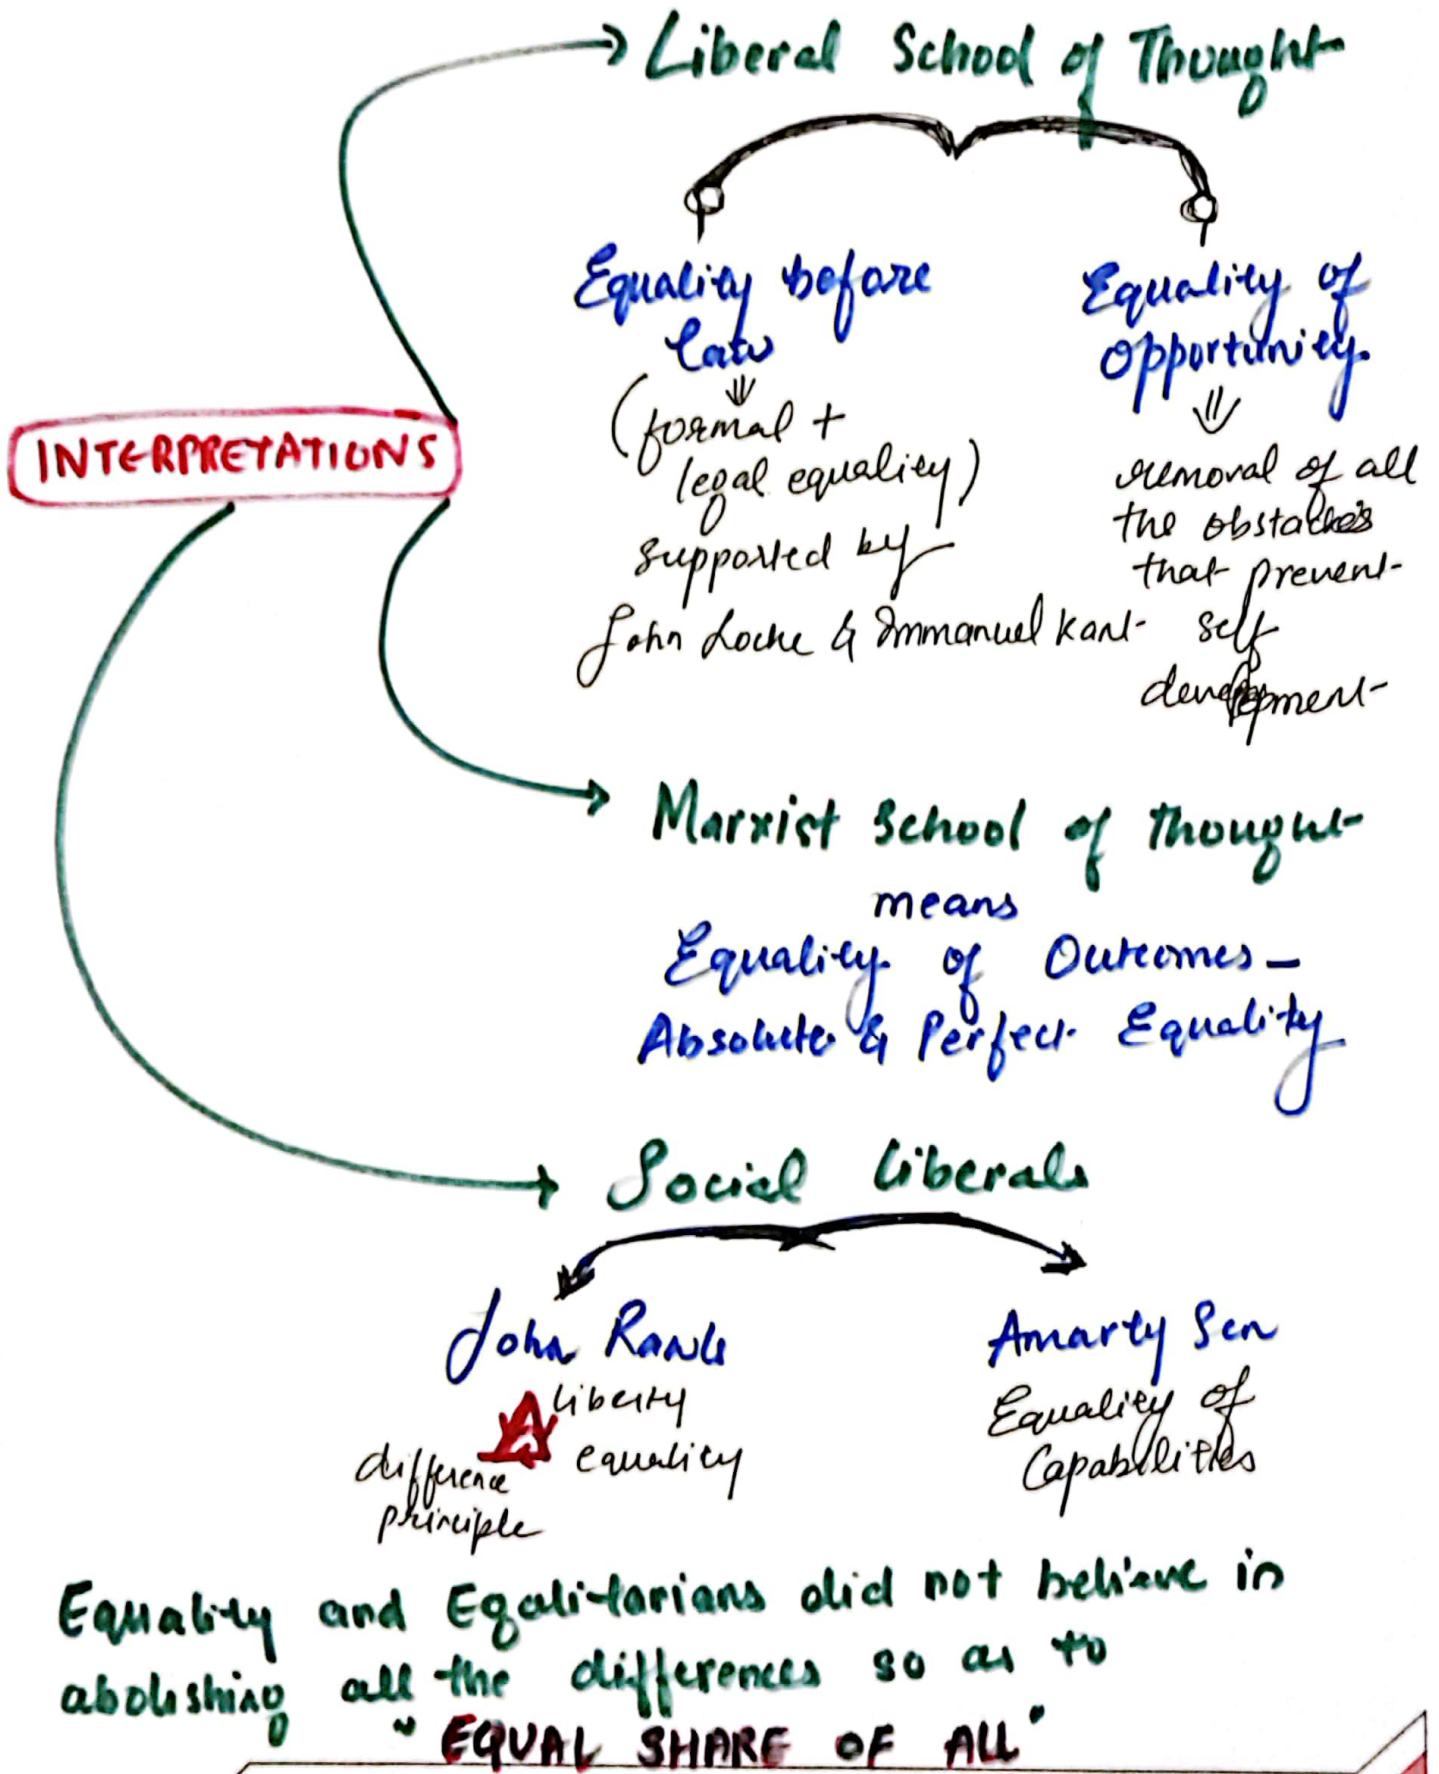 Liberal School of Thought
INTERPRETATIONS
Equality before
law
(formal +
legal equality)
supported by
John Locke & Immanuel Kant
Equality of
opportunity.
removal of all
the obstacles
that prevent
self
development
Marxist School of thought
means
Equality of Outcomes –
Absolute & Perfect Equality
Social liberals
John Rawls
liberty
equality
difference
principle
Amarty Sen
Equality of
Capabilities
Equality and Egalitarians did not believe in
abolishing all the differences so as to
"EQUAL SHARE OF ALL"